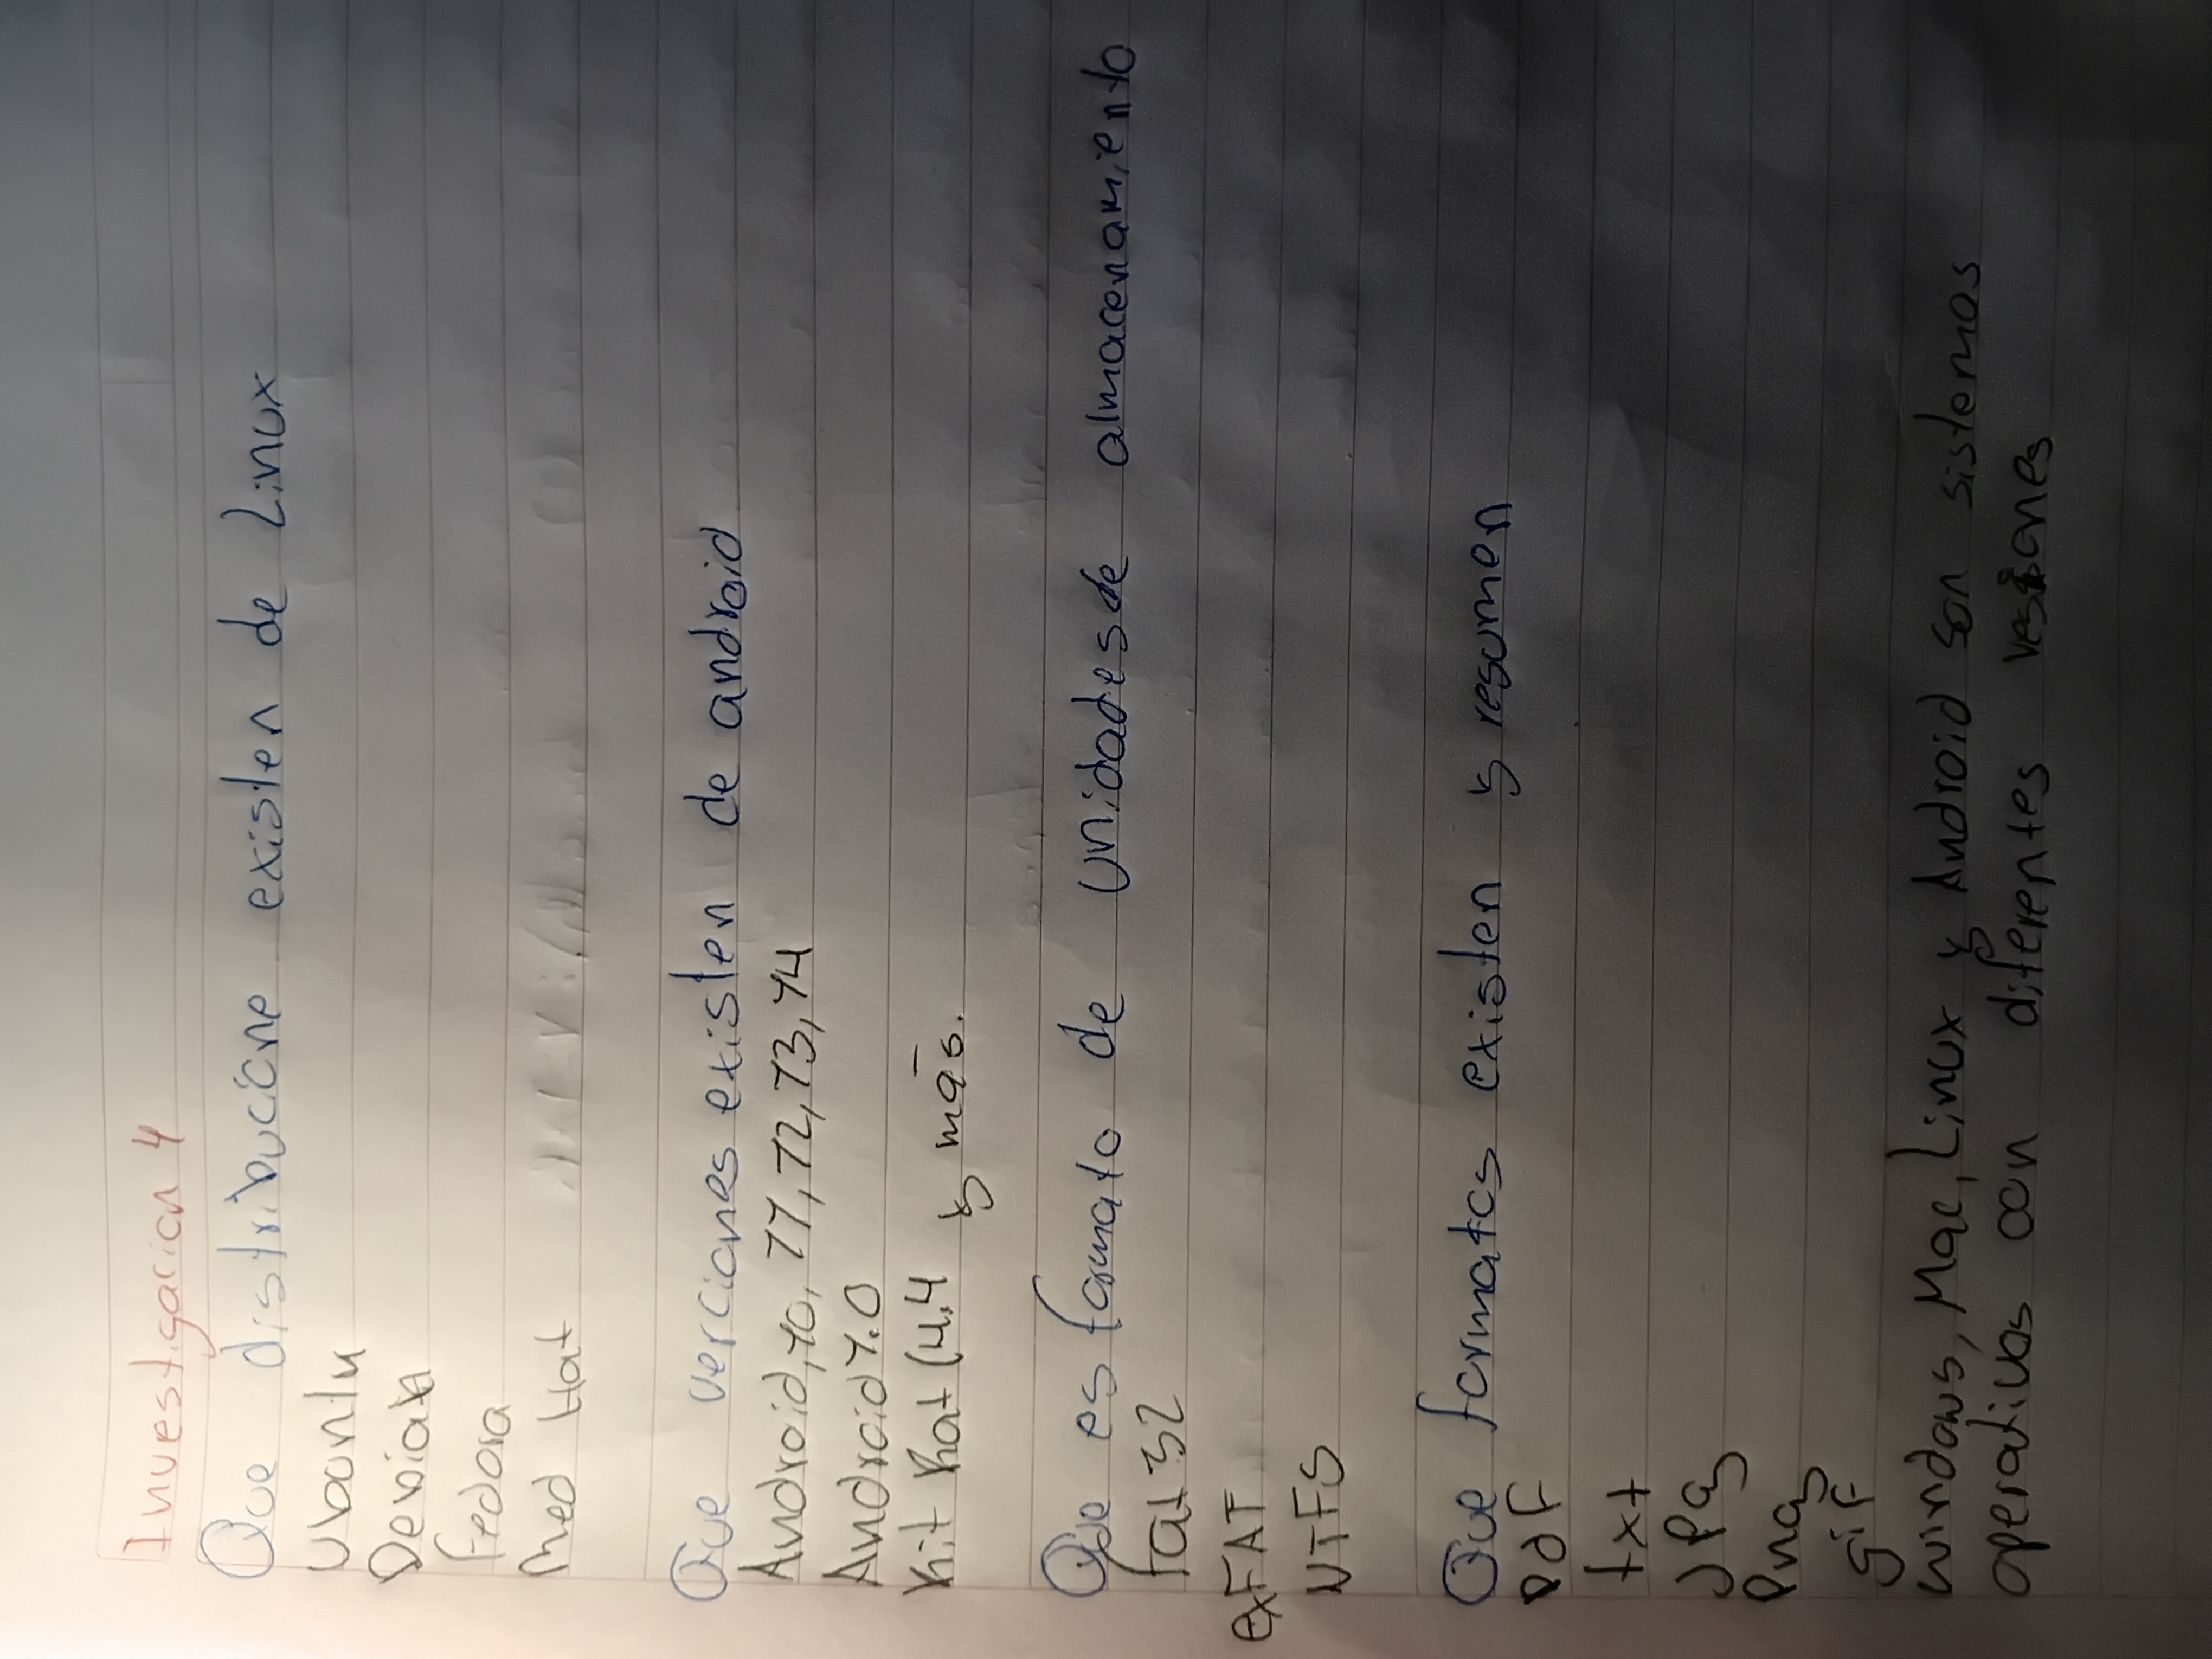 Investigacion 4
Que distribucione existen de Linux
Ubuntu
Devian
fedora
Red Hat
Que verciones existen de android
Android, 10, 11, 12, 13, 14
Android 1.0
Kit Kat (4.4 y más.
Que es formato de unidades de almacenamiento
fat 32
exFAT
NTFS
Que formatos existen y resumen
PdF
txt
JPg
Png
giF
windows, Mac, Linux y Android son sistemas
operativos con diferentes vesiones